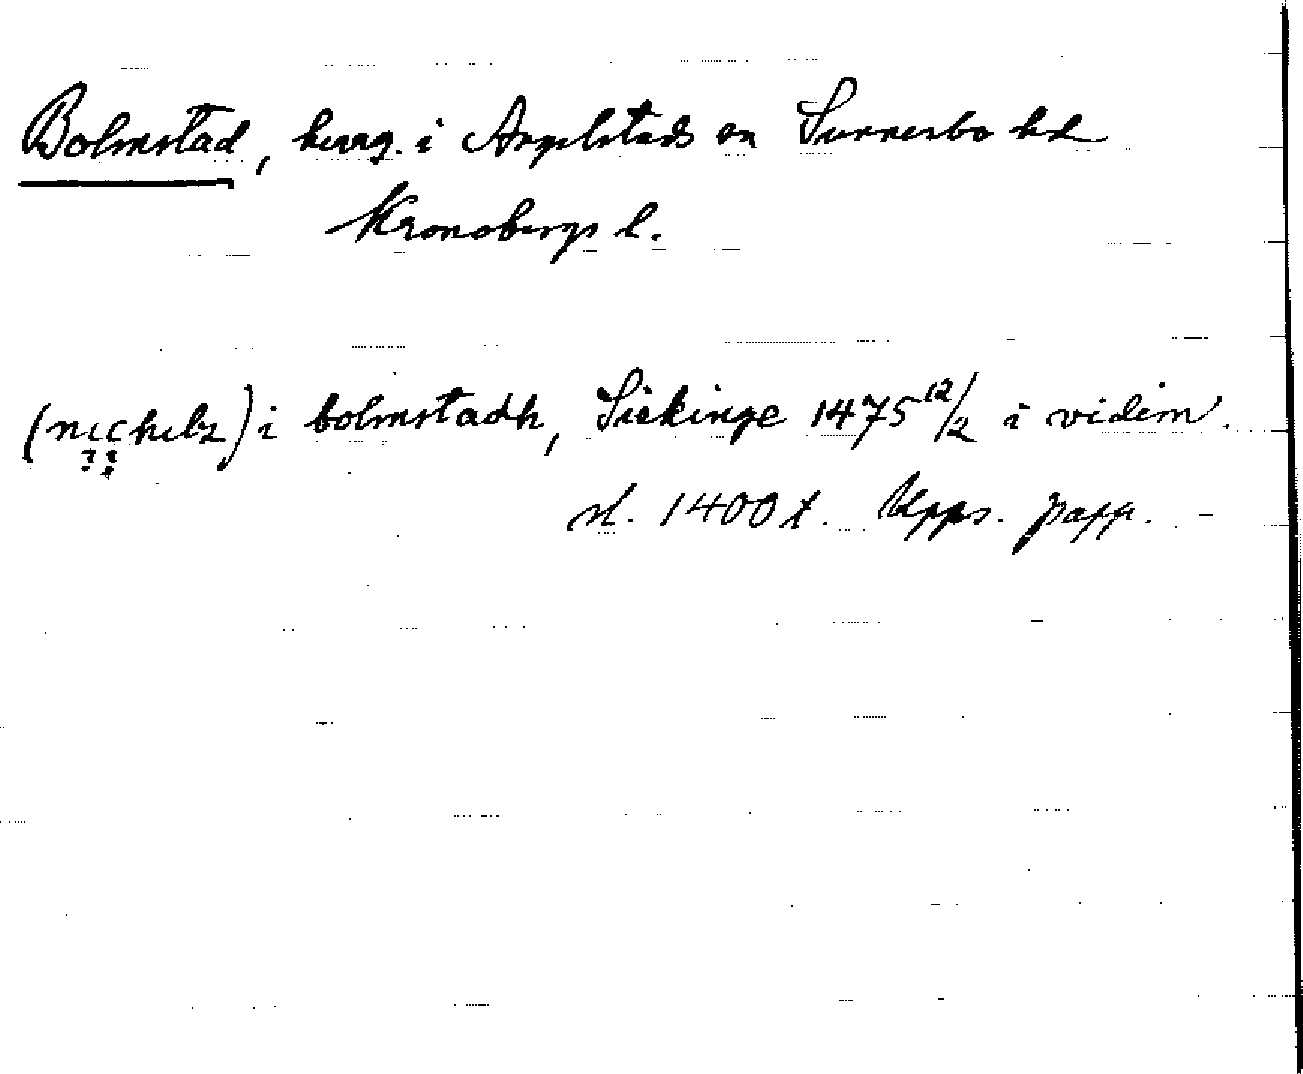 Bolmstad, herrg. i Angelstads sn Sunnerbo hd
Kronobergs l.
i bolmstadh, Siekinge 1475 12/2 i vidim.
sl. 1400 t. Upps. papp.